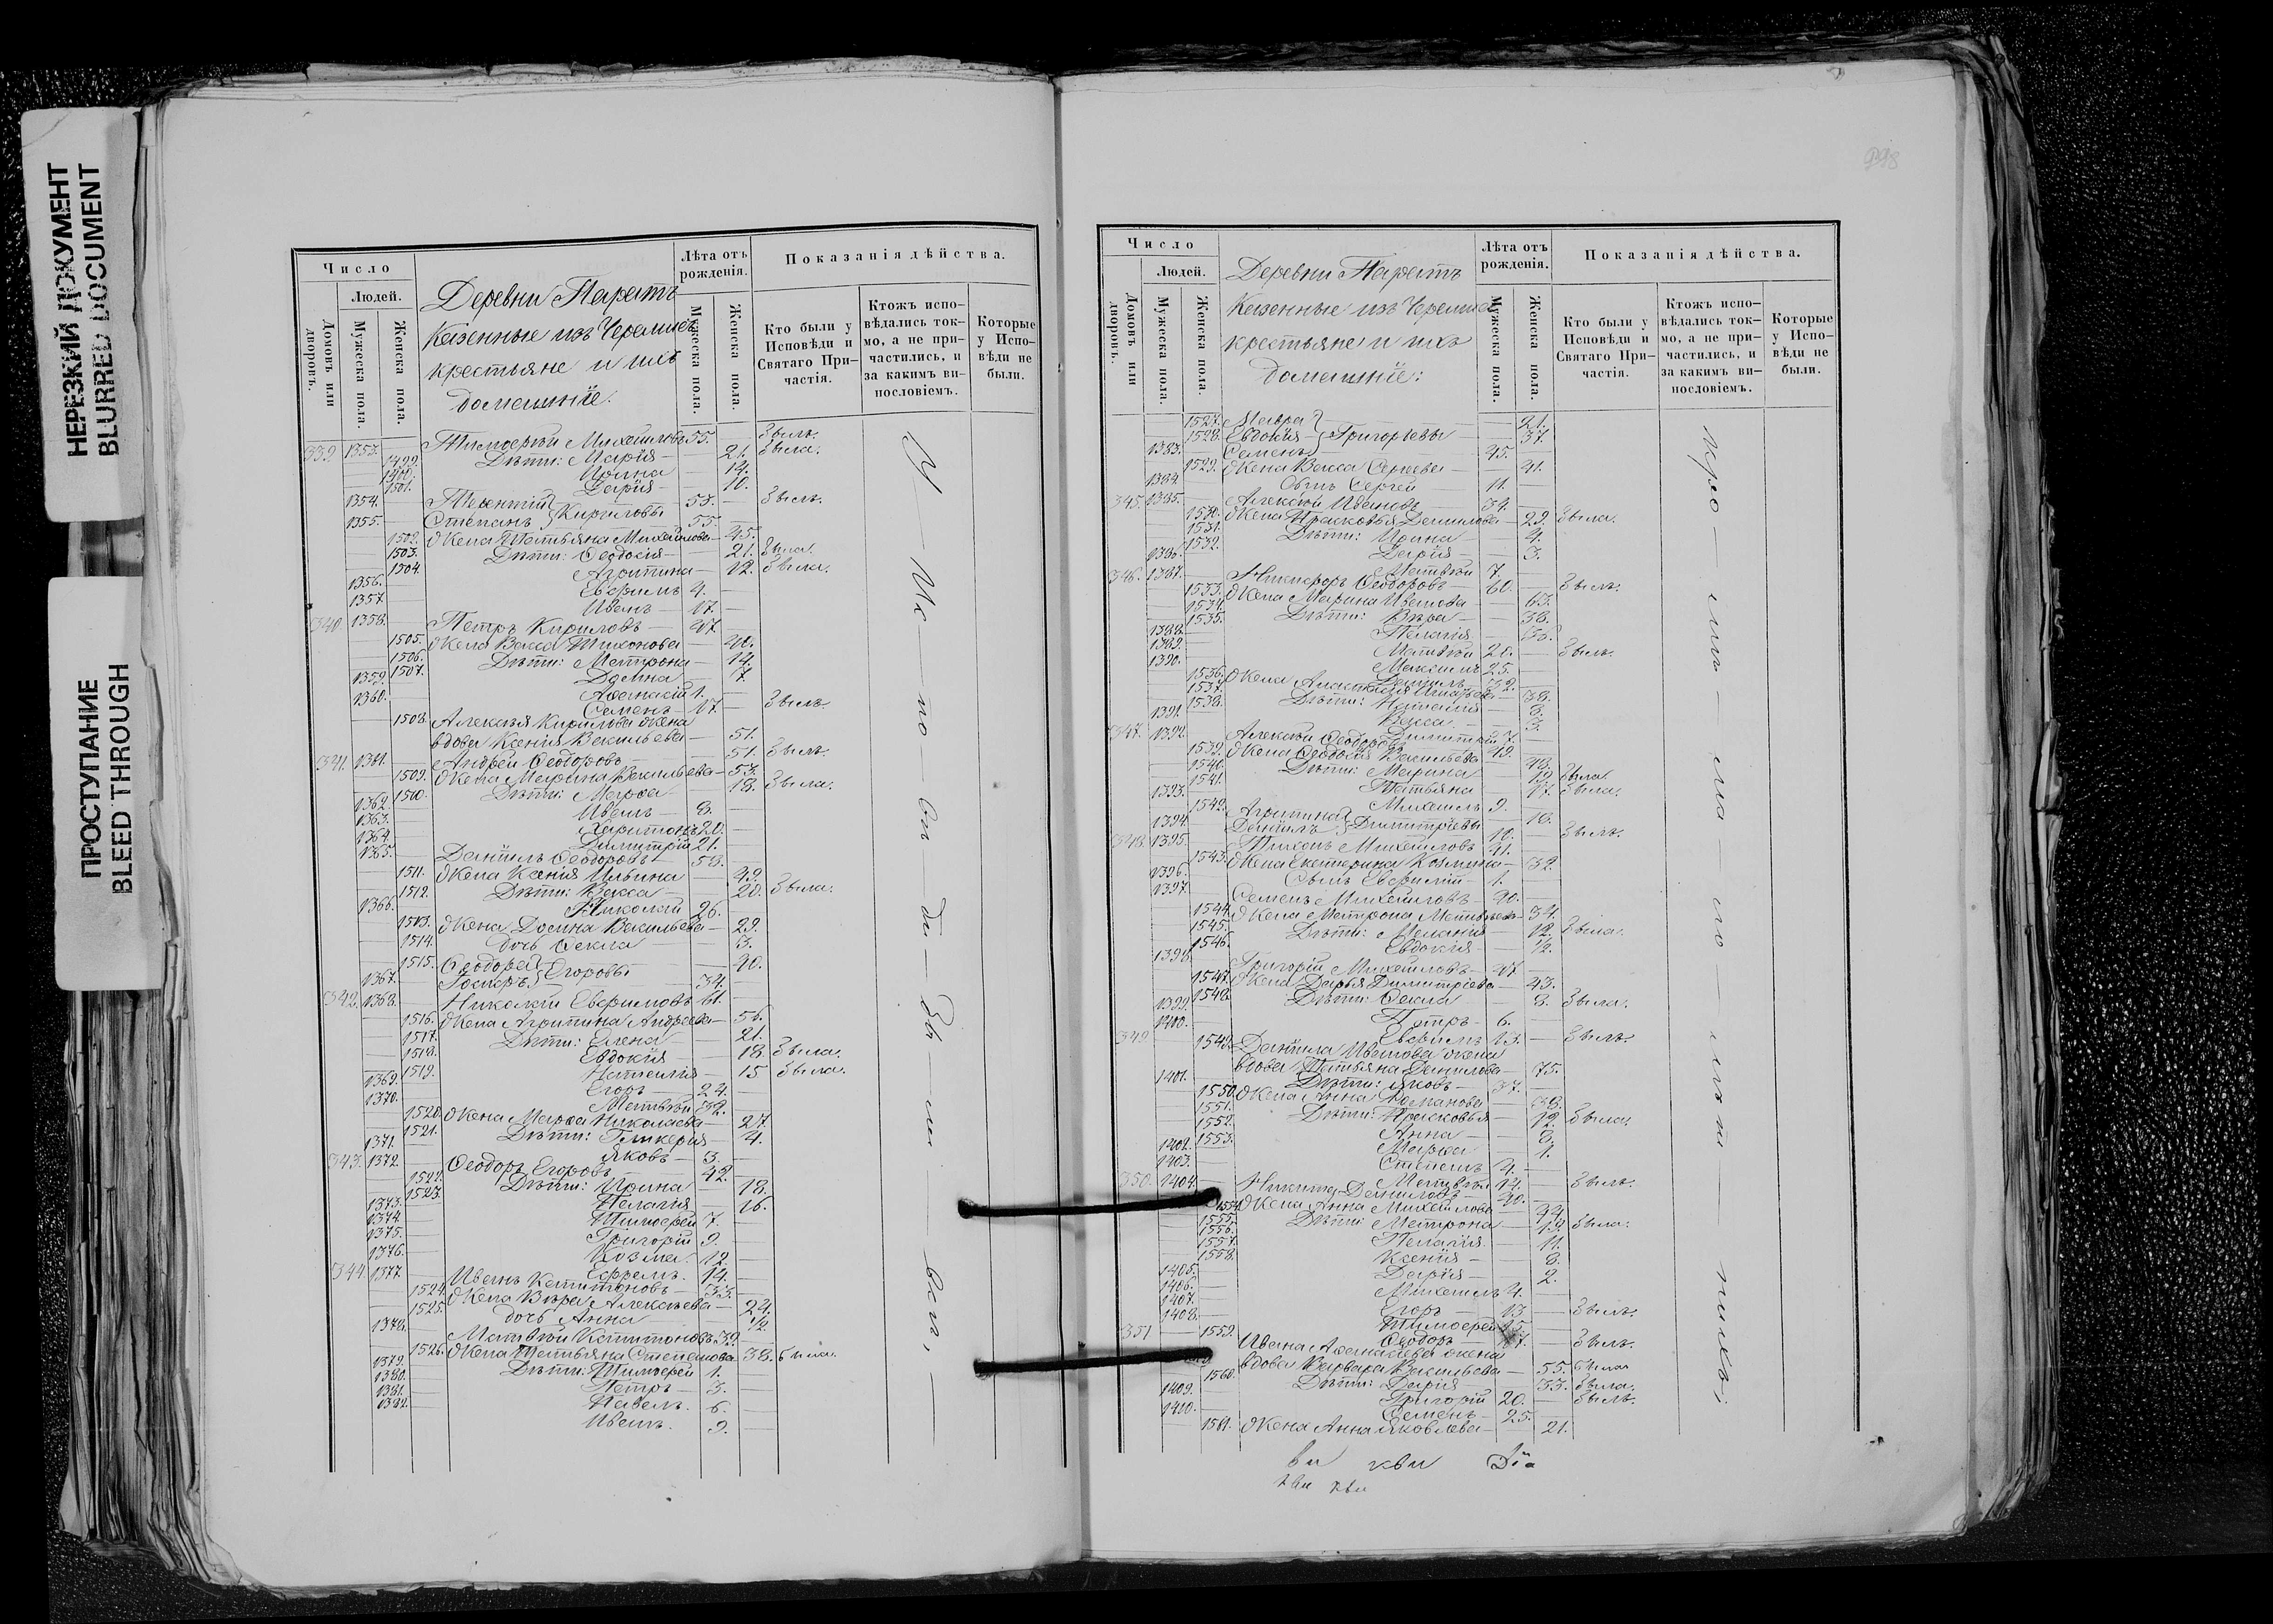 НЕРЕЗКИЙ ДОКУМЕНТ
BLURRED DOCUMENT
ПРОСТУПАНИЕ
BLEED THROUGH
Число
Людей.
Домовъ или дворовъ.
Мужеска пола.
Женска пола.
Деревни Парать
Казенные изъ Черемисъ
крестьяне и ихъ
домашніе.
Лѣта отъ рожденія.
Мужеска пола.
Женска пола.
Показанія дѣйства.
Кто были у Исповѣди и Святаго При-частія.
Ктожъ испо-вѣдались ток-мо, а не при-частились, и за какимъ ви-нословіемъ.
Которые у Испо-вѣди не были.
339 1353. Тимоѳей Михайловъ 55. Былъ.
1499. Дѣти: Марія 21. Была.
1500. Ирина 14.
1501. Дарія 10.
1354. Терентій 53. Былъ.
1355. Степанъ } Кириловы 55.
1502. Жена Татьяна Михайлова 45.
1503. Дѣти: Ѳеодосія 21. Была.
1504. Агрипина 12. Была.
1356. Ефримъ 4.
1357. Иванъ 17.
340 1358. Петръ Кириловъ 47.
1505. Жена Васса Тихонова 40.
1506. Дѣти: Матрона 14.
1507. Домна 7.
1359. Аѳанасій 1.
1360. Семенъ 17. Былъ.
1508. Алексѣя Кирилова жена
вдова Ксенія Васильева 51.
341. 1361. Андрей Ѳеодоровъ 51. Былъ.
1509. Жена Марина Васильева 53.
1510. Дѣти: Марѳа 18. Была.
1362. Иванъ 8.
1363. Харитонъ 20.
1364. Димитрій 21.
1365. Даніилъ Ѳеодоровъ 58.
1511. Жена Ксенія Ильина 49.
1512. Дѣти: Васса 20. Была.
1366. Николай 26.
1513. Жена Домна Васильева 29.
1514. дочь Ѳекла 3.
1515. Ѳеодора 40.
1367. } Егоровы 34.
342. 1368. Николай Ефримовъ 61.
1516. Жена Агрипина Андреева
1517. Дѣти: Елена 21.
1518. Евдокія 18. Была.
1519. Наталія 15 Была.
1369. Егоръ 24.
1370. Матвѣй 32.
1520. Жена Марѳа Николаева 27.
1521. Дѣти: Гликерія 4.
1371. Яковъ 3.
343. 1372. Ѳеодоръ Егоровъ 42.
1522. Дѣти: Ирина 18.
1523. Пелагія 16.
1373. Тимоѳей 7.
1374. Григорій 9.
1375. Козма 12.
1376. Ефремъ 14.
344. 1377. Иванъ Капитоновъ 33.
1524. Жена Вѣра Алексѣева 24.
1525. дочь Анна 1/2.
1378. Матвѣй Капитоновъ 39.
1526. Жена Татьяна Степанова 38. Была.
1379. Дѣти: Тимоѳей 1.
1380. Петръ 3.
1381. Павелъ 6.
1382. Иванъ 9.
Число
Людей.
Домовъ или дворовъ.
Мужеска пола.
Женска пола.
Деревни Парать
Казенные изъ Черемисъ
крестьяне и ихъ
домашніе:
Лѣта отъ рожденія.
Мужеска пола.
Женска пола.
Показанія дѣйства.
Кто были у Исповѣди и Святаго При-частія.
Ктожъ испо-вѣдались ток-мо, а не при-частились, и за какимъ ви-нословіемъ.
Которые у Испо-вѣди не были.
1527. Мавра 21.
1528. Евдокія } Григорьевы 37.
1383. Семенъ 45.
1529. Жена Васса Сергеева 41.
1384. Сынъ Сергей 11.
345. 1385. Алексѣй Ивановъ 34.
1530. Жена Прасковья Данилова 29. Была.
1531. Дѣти: Ирина 4.
1532. Дарія 3.
1386. Матвѣй 7.
346. 1387. Никифоръ Ѳеодоровъ 60. Былъ.
1533. Жена Марина Иванова 63.
1534. Дѣти: Вѣра 38.
1535. Пелагія
1388. Матвѣй 20. Былъ.
1389. Максимъ 25.
1390. Даніилъ 32.
1536. Жена Анастасія 38.
1537. Дѣти: Наталія 8.
1538. Васса 3.
1391. Димитрій 7.
347. 1392. Алексѣй Ѳеодоровъ 49.
1539. Жена Ѳеодосія Васильева 48.
1540. Дѣти: Марина 19. Была.
1541. Татьяна 17. Была.
1393. Михаилъ 9.
1542. Агрипина 18.
1394. Даніилъ } Димитріевы 10. Былъ.
348. 1395. Тихонъ Михайловъ 41.
1543. Жена Екатерина Козмина 32.
1396. Сынъ 1.
1397. Семенъ Михайловъ 40.
1544. Жена Матрона Матвѣева 34.
1545. Дѣти: Меланія 12. Была.
1546. Евдокія 1/2.
1398. Григорій Михайловъ 47.
1547. Жена Дарья Димитріева 43.
1548. Дѣти: Ѳекла 8. Была.
1399. Петръ 6.
1400. Ефримъ 13. Былъ.
349 1549. Даніила Иванова жена
вдова Татьяна Данилова 75.
1401. Дѣти: Яковъ 37.
1550. Жена Анна Романова 38.
1551. Дѣти: Прасковья 12. Была.
1552. Анна 8.
1553. Марѳа 1.
1402. Степанъ 4.
1403. Матвѣй 14. Былъ.
350. 1404. Никита Даниловъ 40.
1554. Жена Анна Михайлова 44.
1555. Дѣти: Матрона 13. Была.
1556. Пелагія 11.
1557. Ксенія 8.
1558. Дарія 2.
1405. Михаилъ 4.
1406. Егоръ 13. Былъ.
1407. Тимоѳей 15.
1408. Ѳеодоръ Былъ.
351 1559. Ивана Аѳанасьева жена
вдова Варвара Васильева 55. Была
1560. Дѣти: Дарія 33. Была.
1409. Григорій 20. Былъ.
1410. Семенъ 25.
1561. Жена Анна Яковлева 21.